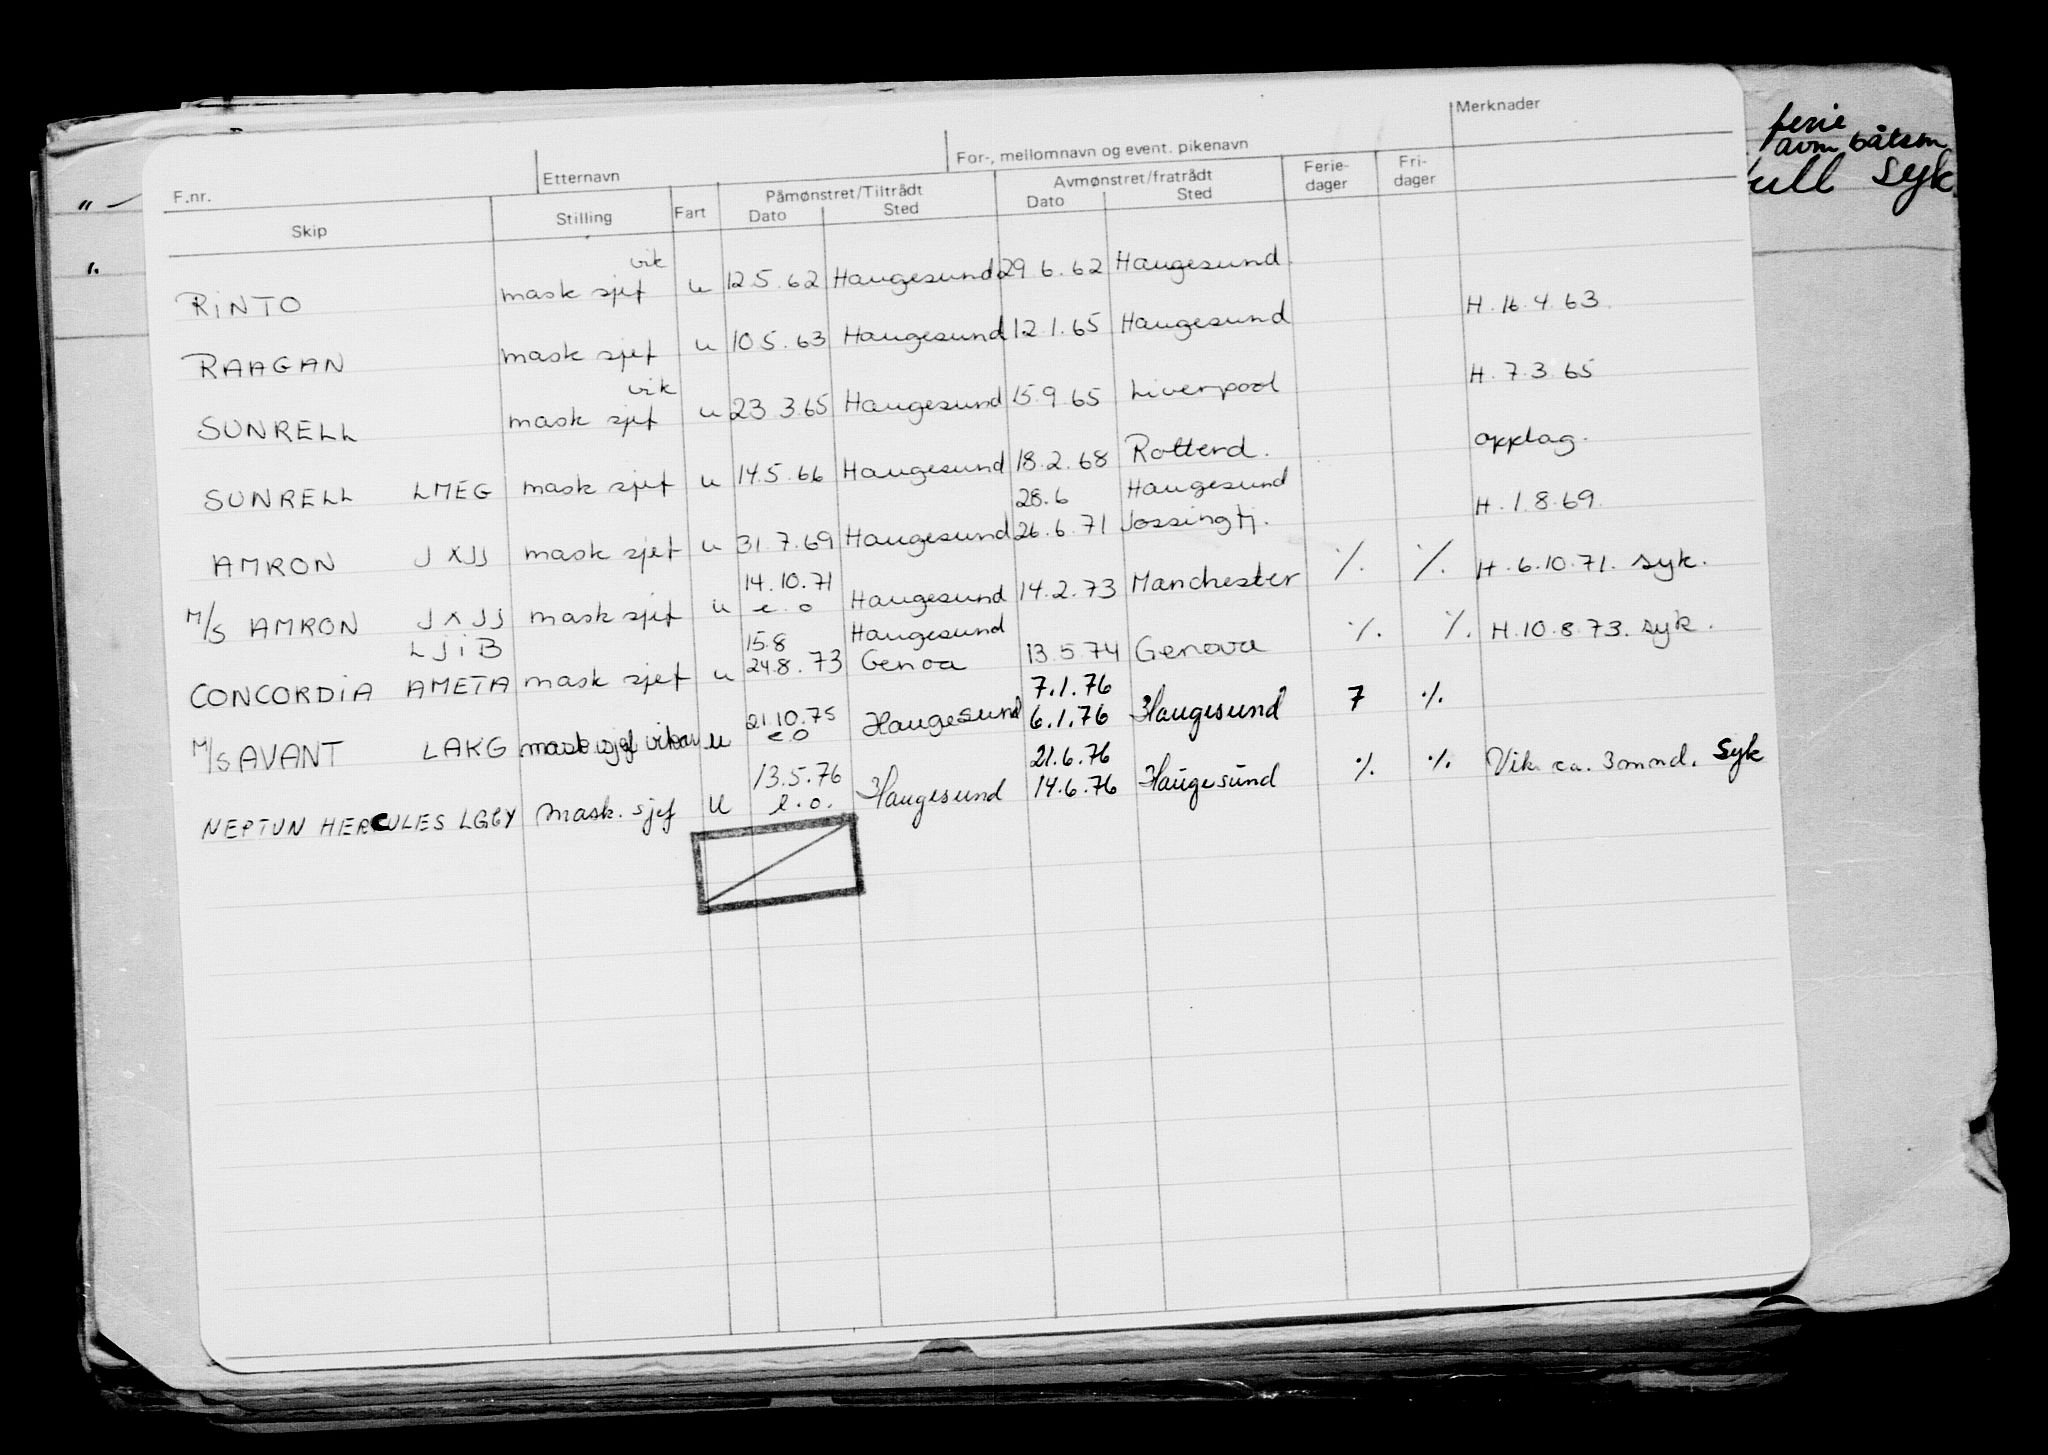 F.nr. Etternavn For-, mellomnavn og event. pikenavn Merknader
Skip Stilling Fart Påmønstret/Tiltrådt Avmønstret/fratrådt Ferie-dager Fri-dager
Dato Sted Dato Sted
vik
RINTO mask sjef u 12.5.62 Haugesund 29.6.62 Haugesund
RAAGAN mask sjef u 10.5.63 Haugesund 12.1.65 Haugesund H.16.4.63.
vik
SUNRELL mask sjef u 23.3.65 Haugesund 15.9.65 Liverpool H.7.3.65
SUNRELL LMEG mask sjef u 14.5.66 Haugesund 18.2.68 Rotterd. opplag.
28.6 Haugesund
AMRON JXJJ mask sjef u 31.7.69 Haugesund 26.6.71 Jossingfj. H.1.8.69.
14.10.71
M/S AMRON JXJJ mask sjef u e.o Haugesund 14.2.73 Manchester ./. ./. H.6.10.71. syk.
LJIB 15.8 Haugesund
CONCORDIA AMETA mask sjef u 24.8.73 Genoa 13.5.74 Genova ./. ./. H.10.8.73. syk.
21.10.75 7.1.76
M/S AVANT LAKG mask sjef vikar u e.o Haugesund 6.1.76 Haugesund 7 ./.
13.5.76 21.6.76
NEPTUN HERCULES LGGY mask. sjef u e.o. Haugesund 14.6.76 Haugesund ./. ./. Vik. ca. 3 mnd. Syk
ferie
avm båtsm
syk